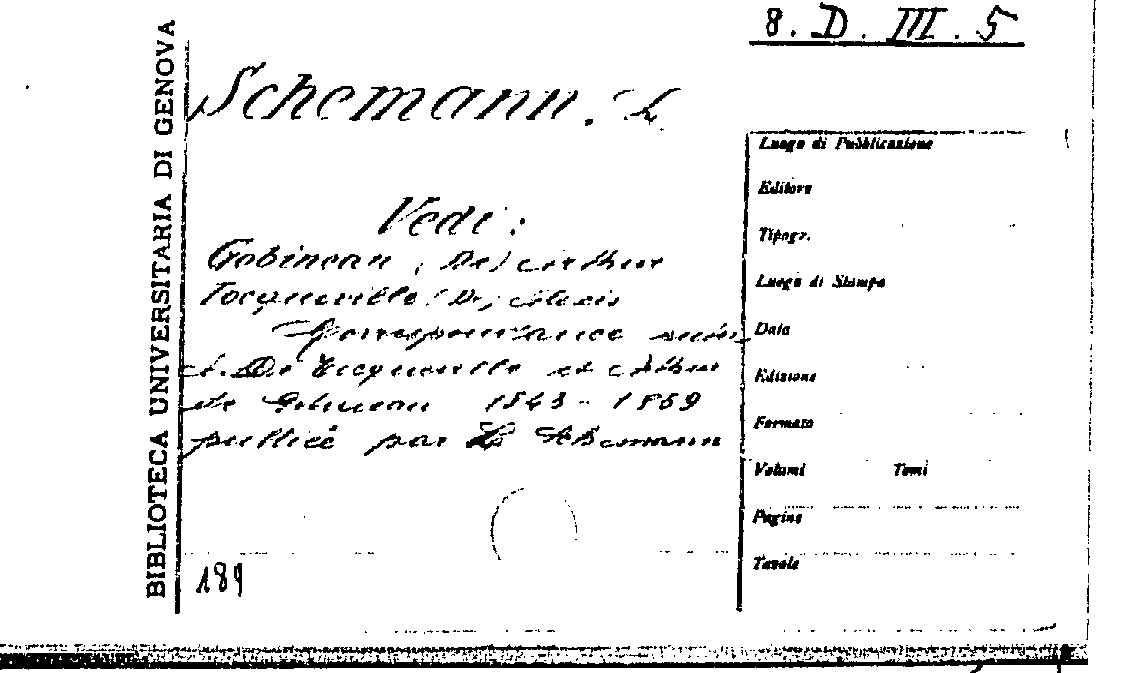 8. D. III. 5
BIBLIOTECA UNIVERSITARIA DI GENOVA
Schemann. L
Vedi:
Gobineau, (De) Arthur
Tocqueville (De) Alexis
Correspondance entre
A. De Tocqueville et Arthur
de Gobineau 1843-1859
publiée par L. Schemann
189
Luogo di Pubblicazione
Editore
Tipogr.
Luogo di Stampa
Data
Edizione
Formato
Volumi Tomi
Pagine
Tavole